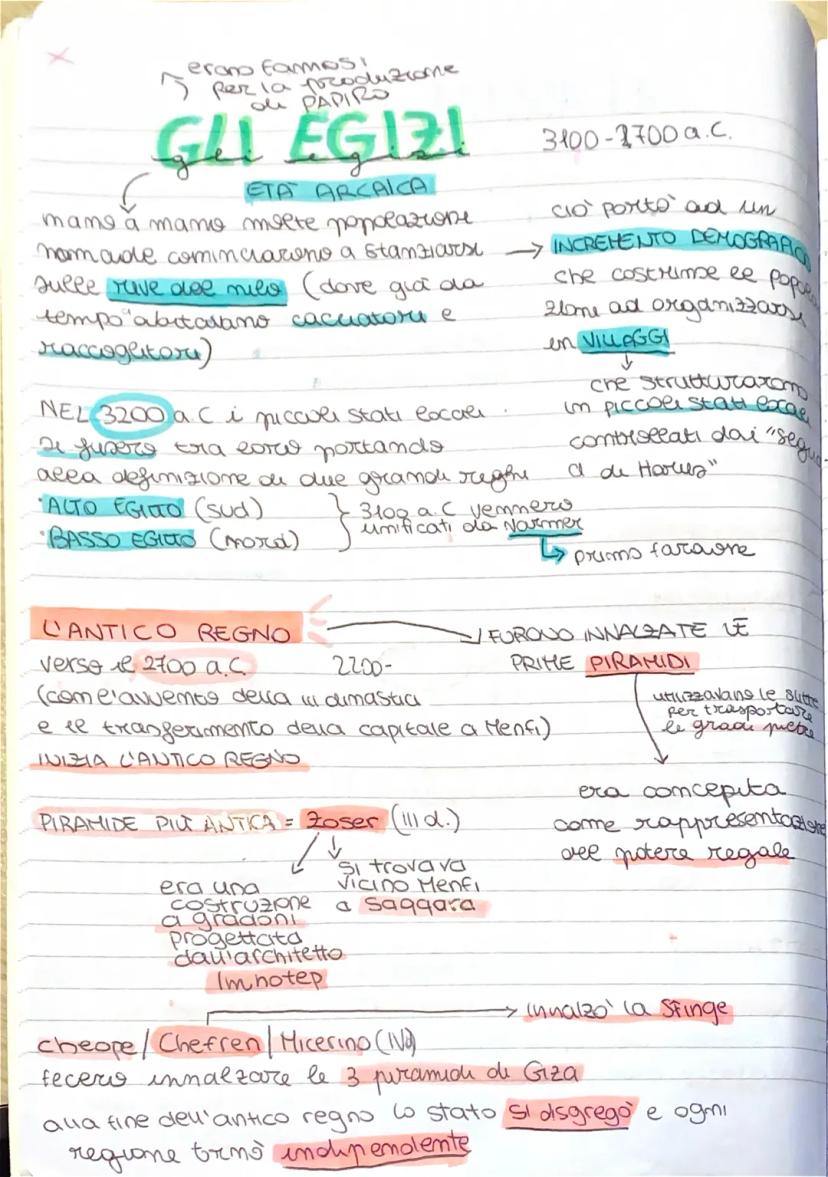 erano famosi
per la produzione
di PAPIRO
GLI EGIZI
gli egizi
3100-2700 a.C.
ETÀ ARCAICA
mano a mano molte popolazione
nomade cominciarono a stanziarsi
sulle rive del nilo (dove già da
tempo abitavano cacciatori e
raccoglitori)
ciò portò ad un
INCREMENTO DEMOGRAFICO
che costrinse le popola
zioni ad organizzarsi
in VILLAGGI
che strutturarono
in piccoli stati locali
controllati dai "segua
ci di Horus"
NEL 3200 a.C i piccoli stati locali
si fusero tra loro portando
alla definizione di due grandi regni
·ALTO EGITTO (sud)
·BASSO EGITTO (nord)
3100 a.C vennero
unificati da Narmer
primo faraone
L'ANTICO REGNO
verso il 2700 a.C. 2200-
(com l'avvento della III dinastia
e il trasferimento della capitale a Menfi)
INIZIA L'ANTICO REGNO
FURONO INNALZATE LE
PRIME PIRAMIDI
utilizzavano le slitte
per trasportare
le gradi pietre
era concepita
come rappresentazione
del potere regale
PIRAMIDE PIÙ ANTICA = Zoser (III d.)
era una
costruzione
a gradoni
progettata
dall'architetto
Imhotep
si trovava
vicino Menfi
a Saqqara
innalzò la Sfinge
cheope/Chefren/Micerino (IVd)
fecero innalzare le 3 piramidi di Giza
alla fine dell'antico regno lo stato si disgregò e ogni
regione tornò indipendente